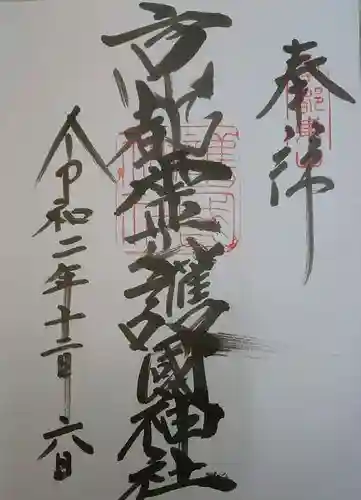 奉拝
京都霊山護國神社
令和二年十二月六日